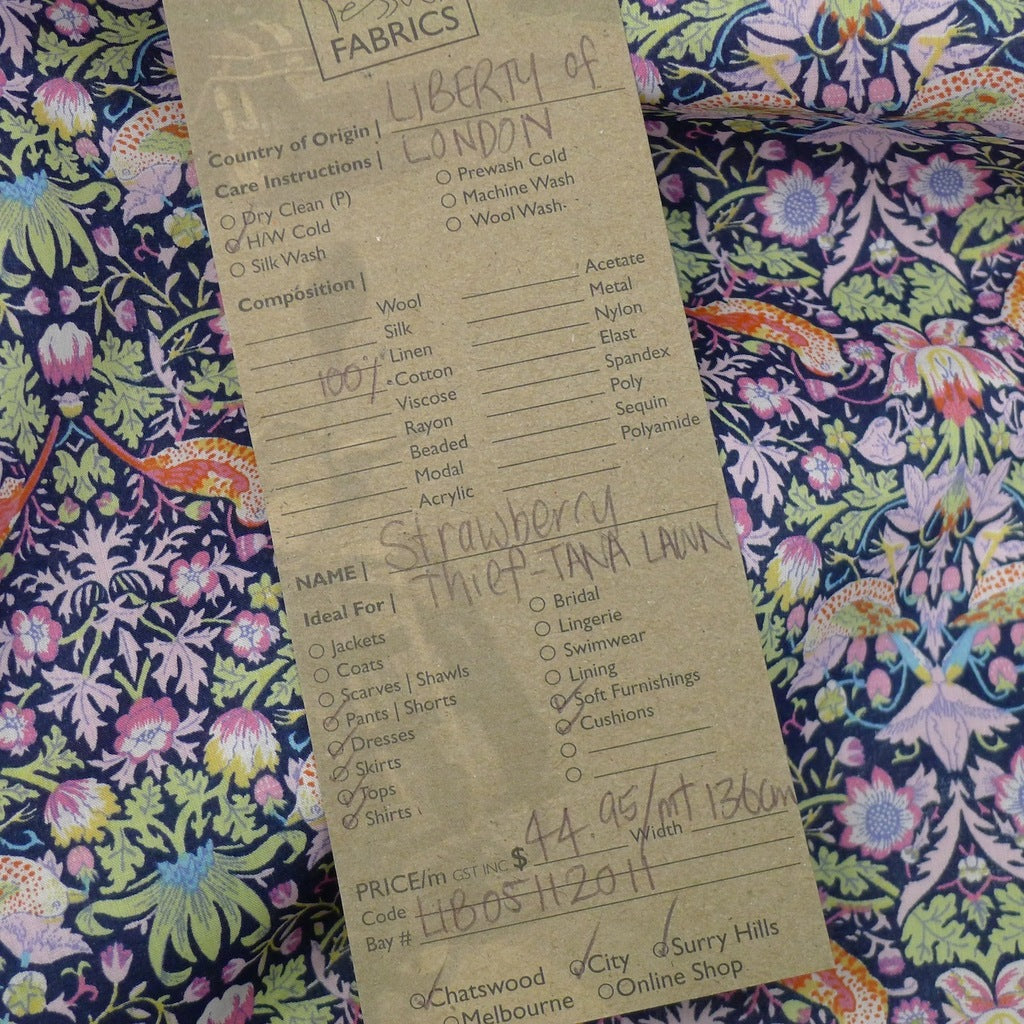 FABRICS
LIBERTY of
Country of Origin |
LONDON
Care Instructions |
Prewash Cold
Dry Clean (P)
Machine Wash
H/W Cold
Wool Wash
Silk Wash
Composition |
Wool
Acetate
Silk
Metal
Linen
Nylon
100% Cotton
Elast
Viscose
Spandex
Rayon
Poly
Beaded
Sequin
Modal
Polyamide
Acrylic
NAME | Strawberry
Thief-TANA LAWN
Ideal For |
Bridal
Jackets
Lingerie
Coats
Swimwear
Scarves | Shawls
Lining
Pants | Shorts
Soft Furnishings
Dresses
Cushions
Skirts
Tops
Shirts
PRICE/m GST INC $ 44.95/mt Width 136cm
Code LIB05112011
Bay #
Chatswood City Surry Hills
Melbourne Online Shop